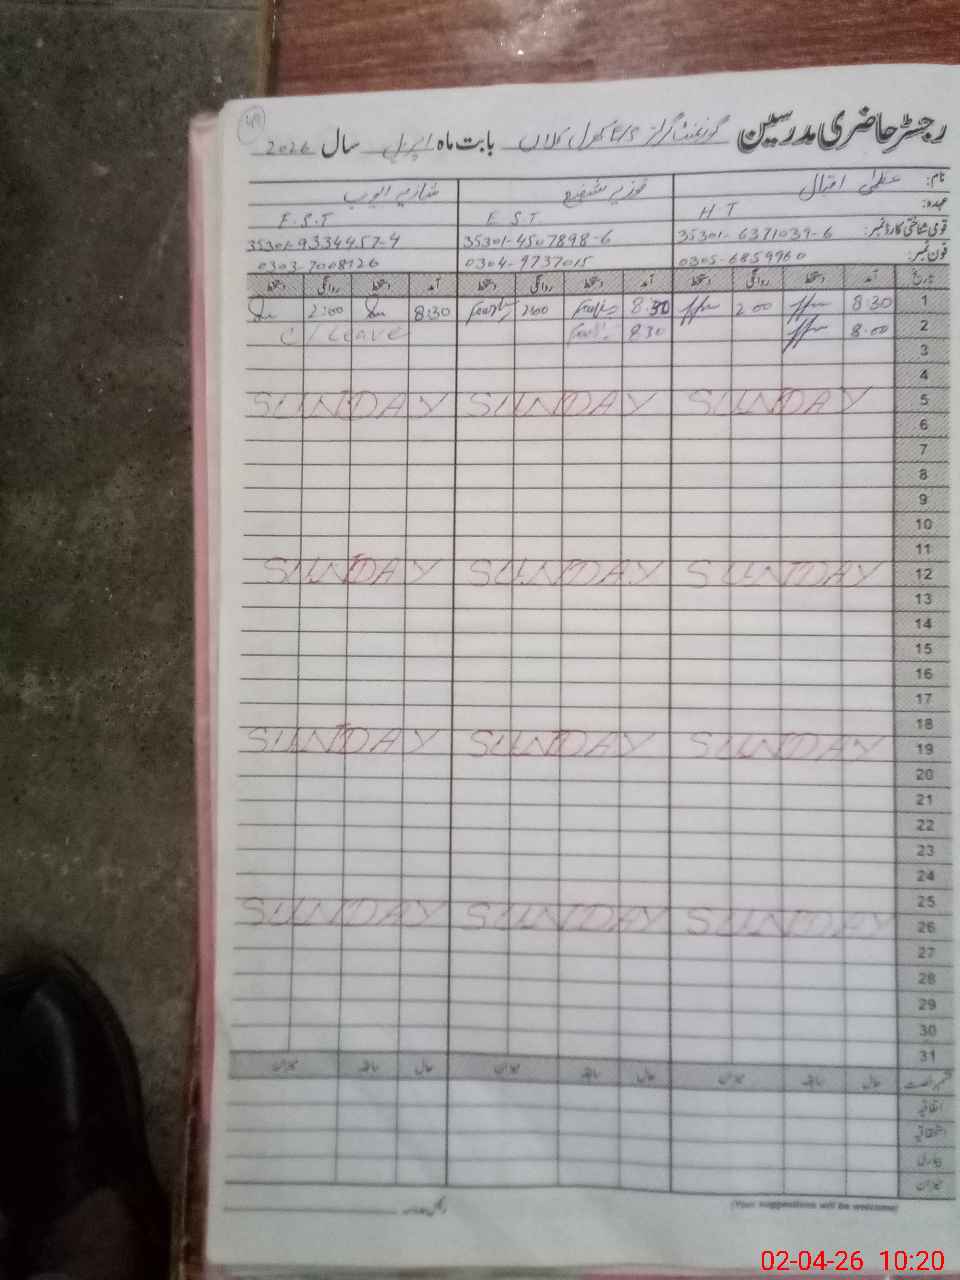 49
رجسٹر حاضری مدرسین گورنمنٹ گرلز کلاں بابت ماہ اپریل سال 2026
نام: عظمیٰ اقبال فوزیہ شفیع شازیہ ایوب
عہدہ: H T E S T E.S.T
قومی شناختی کارڈ نمبر: 35301-6371039-6 35301-4507898-6 35301-9334457-4
فون نمبر: 0305-6859960 0304-9737015 0303-7008126
تاریخ آمد دستخط روانگی دستخط آمد دستخط روانگی دستخط آمد دستخط روانگی دستخط
1 8:30 2:00 8:30 2:00 8:30 2:00
2 8:00 8:30 C/Leave
3
4
5 SUNDAY SUNDAY SUNDAY
6
7
8
9
10
11
12 SUNDAY SUNDAY SUNDAY
13
14
15
16
17
18
19 SUNDAY SUNDAY SUNDAY
20
21
22
23
24
25
26 SUNDAY SUNDAY SUNDAY
27
28
29
30
31
حال سابقہ میزان حال سابقہ میزان حال سابقہ میزان
اتفاقیہ
استحقاقیہ
بیماری
میزان
(Your suggestions will be welcome)
02-04-26 10:20